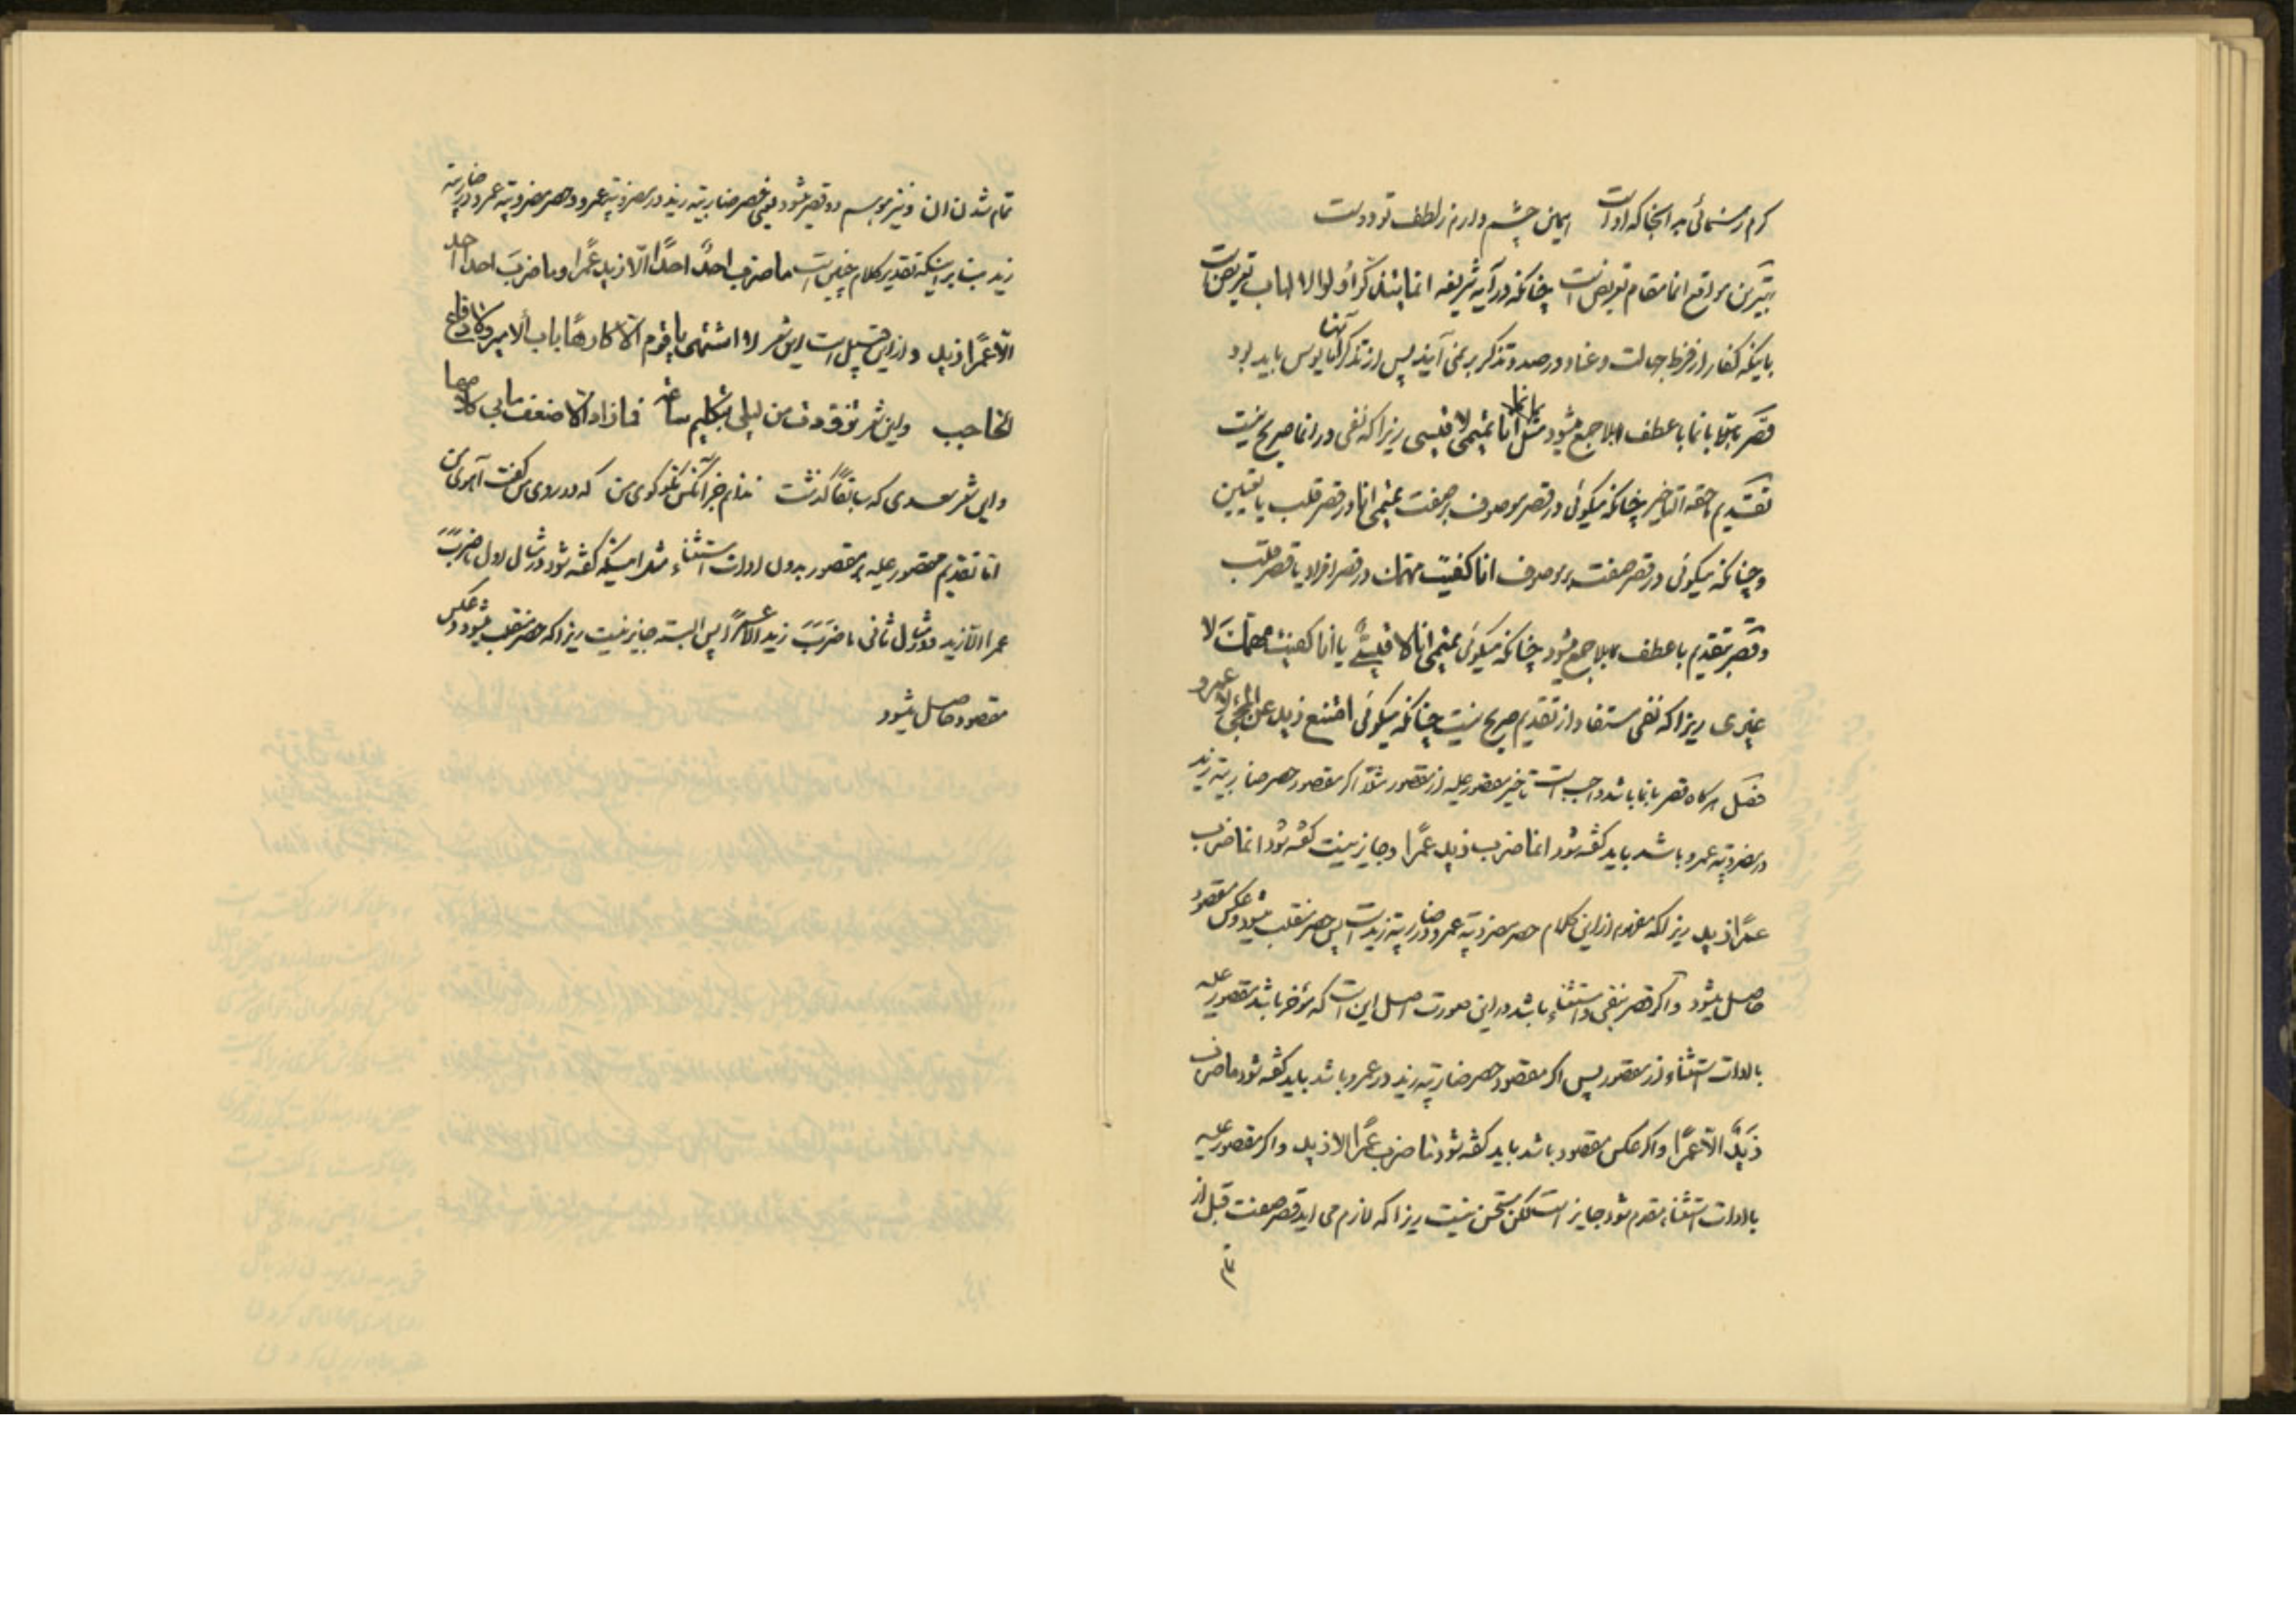 کرم رهنمائی به انجا که اوست ایمن چشم دارم ز لطف تو دوست
بهترین مواقع انما مقام تعریض است چنانکه در آیه شریفه انما یتذکر اولوا الالباب تعریض است
باینکه کفار از فرط جهالت و عناد در صدد تذکر بر نمی آیند پس از تذکر آنها مایوس باید بود
قصر بانما با عطف بلا جمع میشود مثل انما انا تمیمی لا قیسی زیرا که نفی در انما صریح نیست
تقدیم ما حقه التاخیر چنانکه میگوئی در قصر موصوف بر صفت تمیمی انا در قصر قلب یا تعیین
و چنانکه میگوئی در قصر صفت بر موصوف انا کفیت مهمتک در قصر افراد یا قصر قلب
و قصر بتقدیم با عطف بلا جمع میشود چنانکه میگوئی تمیمی انا لا قیسی یا انا کفیت مهمتک لا
غیری زیرا که نفی مستفاد از تقدیم صریح نیست چنانکه میگوئی امتنع زید عن المجئ لا عمرو
فصل هر گاه قصر بانما باشد واجب است تاخیر مقصور علیه از مقصور مثلا اگر مقصود حصر ضاربیة زید
در مضروبیة عمرو باشد باید گفته شود انما ضرب زید عمرا و جایز نیست گفته شود انما ضرب
عمرا زید زیرا که مفهوم از این کلام حصر مضروبیة عمرو در ضاربیة زید است پس حصر منقلب میشود و عکس مقصود
حاصل میشود و اگر قصر بنفی و استثناء باشد در این صورت اصل این است که مؤخر باشد مقصور علیه
با ادات استثناء از مقصور پس اگر مقصود حصر ضاربیة زید در عمرو باشد باید گفته شود ما ضرب
زید الا عمرا و اگر عکس مقصود باشد باید گفته شود ما ضرب عمرا الا زید و اگر مقصور علیه
با ادات استثناء مقدم شود جایز است لکن مستحسن نیست زیرا که لازم می اید قصر صفت قبل از
تمام شدن ان و نیز موسم دو قصر میشود یعنی قصر ضاربیة زید در مضروبیة عمرو و حصر مضروبیة عمرو در ضاربیة
زید بنا بر اینکه تقدیر کلام چنین است ما ضرب احد احدا الا زید عمرا و ما ضرب احدا احد
الا عمرا زید و از این قبیل است این شعر لا اشتهی یا قوم الا کارها باب الامیر ولا دفاع
الحاجب و این شعر تزودت من لیلی بتکلیم ساعة فما زاد الا ضعف ما بی کلامها
و این شعر سعدی که سابقا گذشت ندانم جز آنکس نکو گوی من که در روی من گفت آهوی من
اما تقدیم مقصور علیه بر مقصور بدون ادات استثناء مثل اینکه گفته شود در مثال اول ما ضرب
عمرا الا زید و در مثال ثانی ما ضرب زید الا عمرا پس البته جایز نیست زیرا که حصر منقلب میشود و عکس
مقصود حاصل میشود